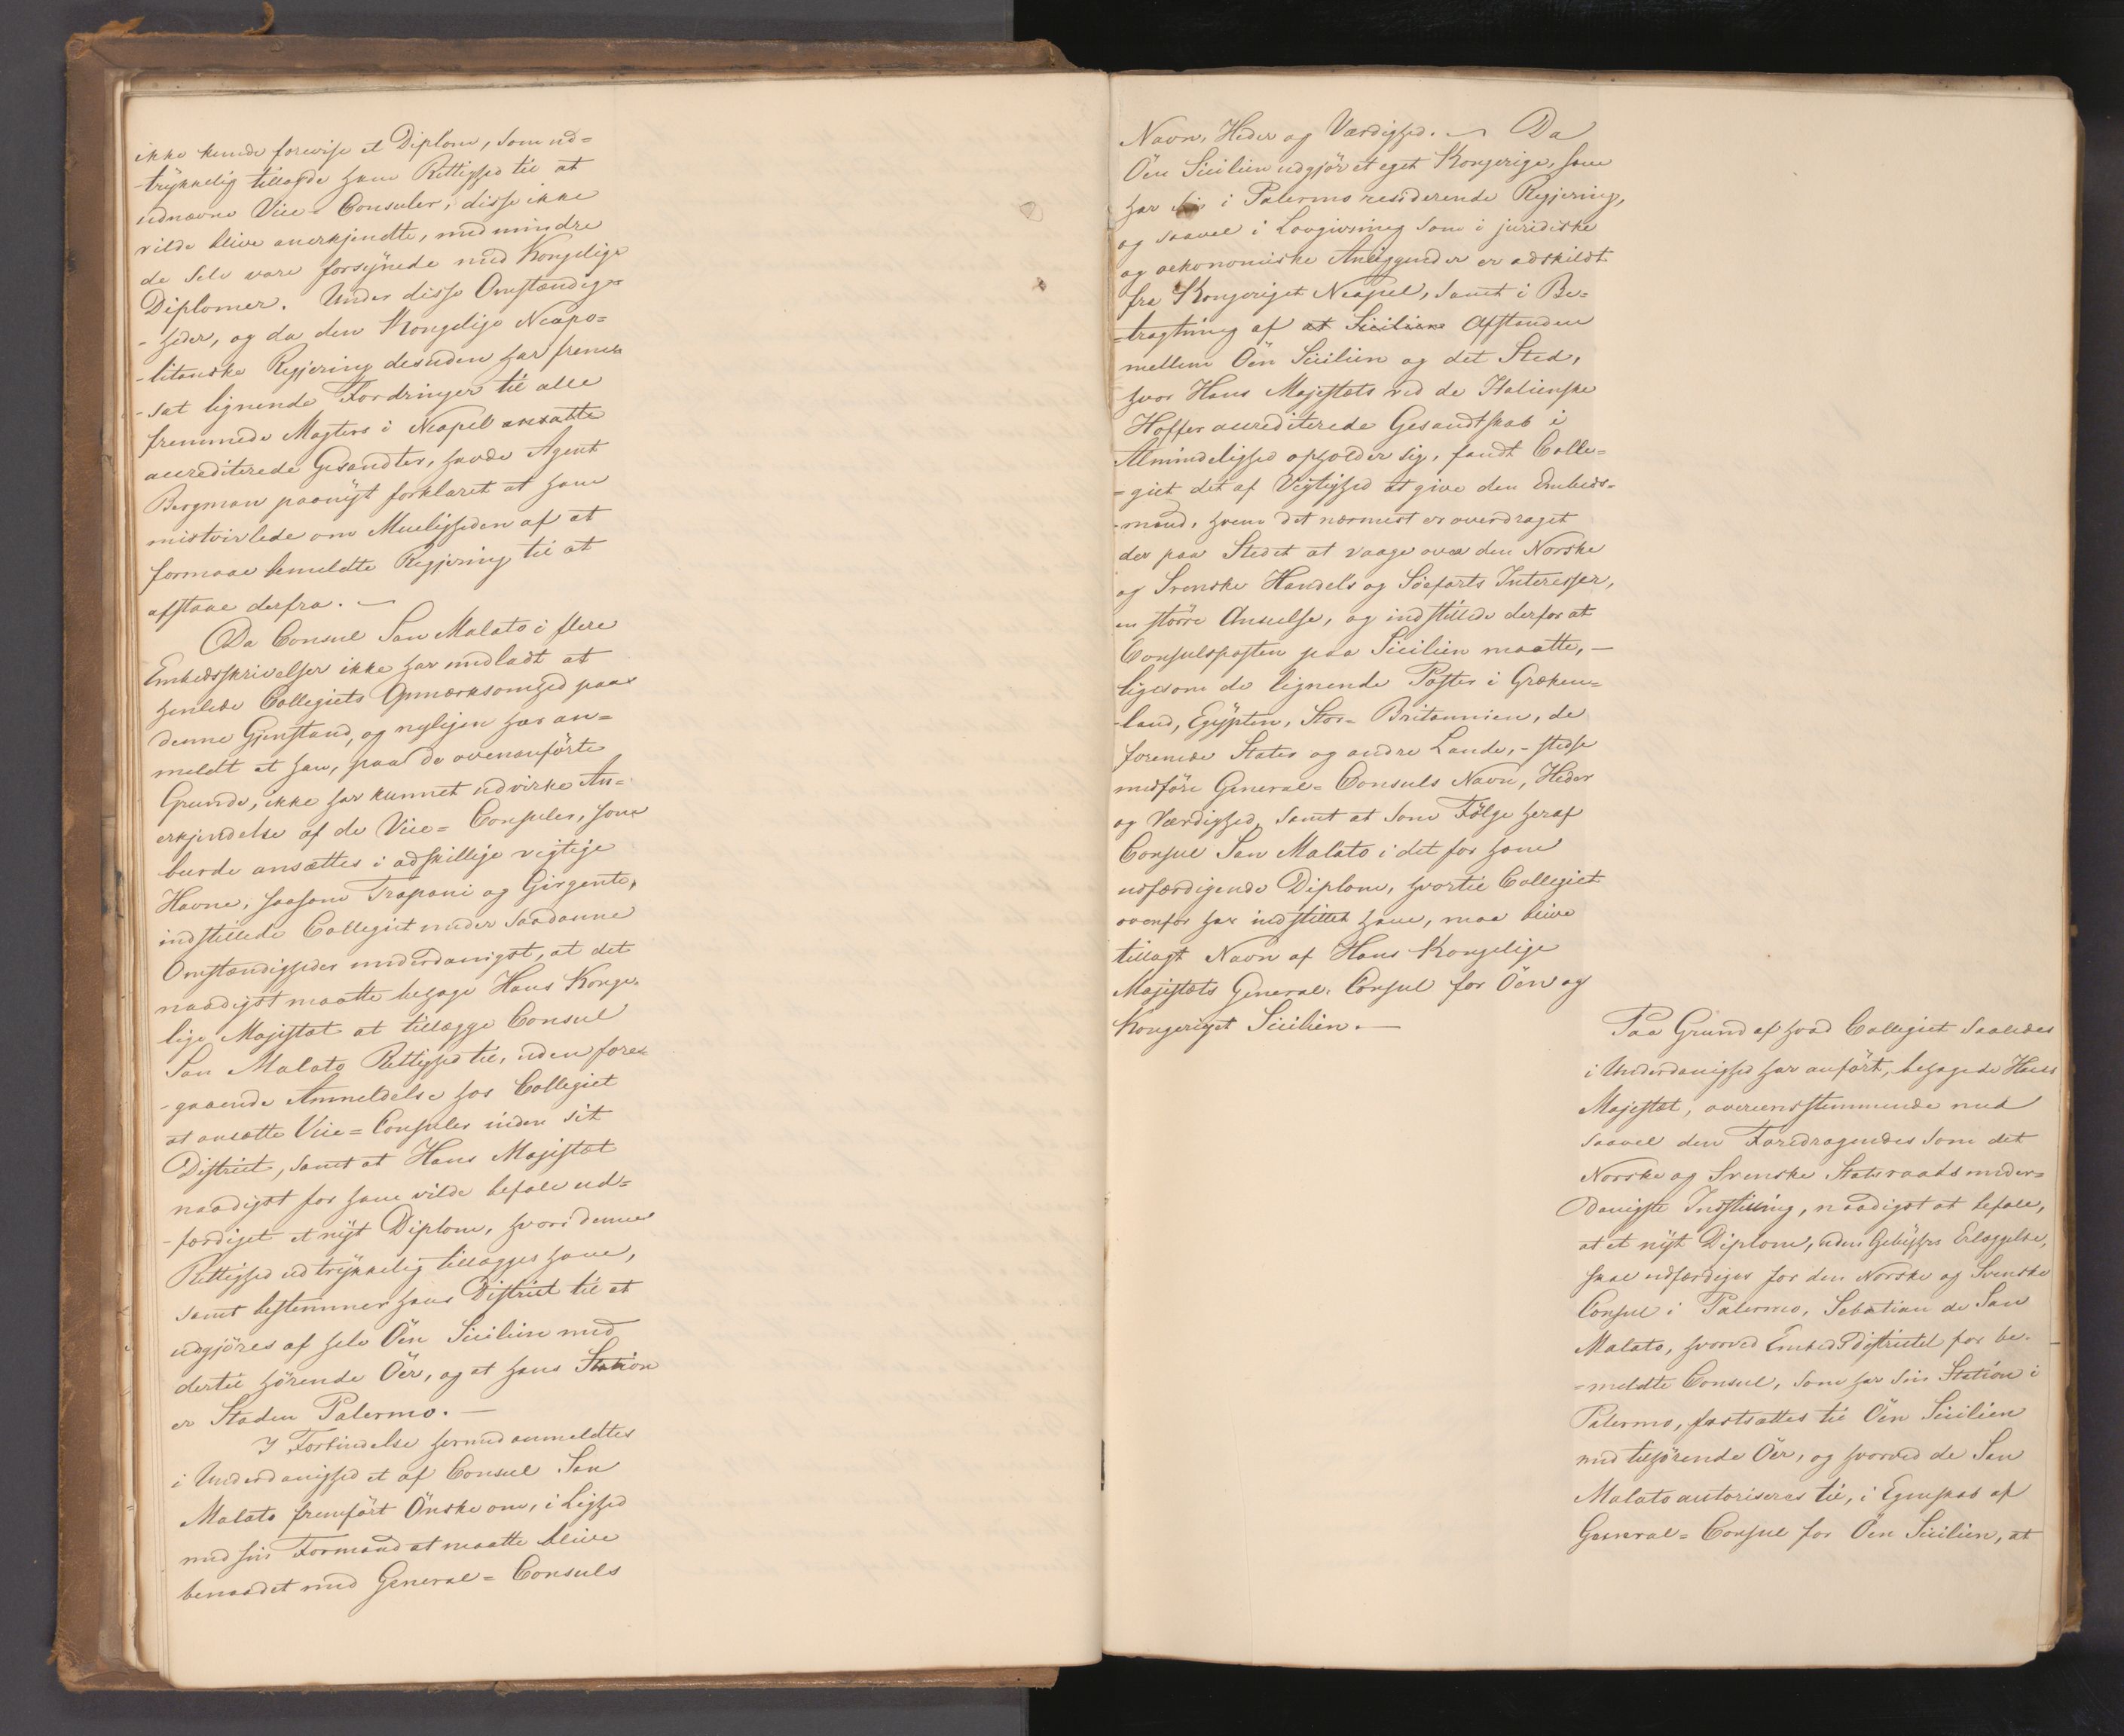 ikke kunde forevise et Diplom, som ud=
-trykkelig tillagde ham Rettighed til at
udnævne Vice-Consuler, disse ikke
vilde blive anerkjendte, med mindre
de selv vare forsynede med Kongelige
Diplomer. Under disse Omstændig=
-heder, og da den Kongelige Neapo=
-litanske Regjering desuden har frem=
-sat lignende Fordringer til alle
fremmede Magters i Neapel ansatte
accrediterede Gesandter, havde Agent
Bergman paanyt forklaret at han
mistvivlede om Mueligheden af at
formaae bemeldte Regjering til at
afstaae derfra. —
Da Consul San Malato i flere
Embedsskrivelser ikke har undladt at
henlede Collegiets Opmærksomhed paa
denne Gjenstand, og nyligen har an=
meldt at han, paa de ovenanførte
Grunde, ikke har kunnet udvirke An=
erkjendelse af de Vice=Consuler, som
burde ansættes i adskillige vigtige
Havne, saasom Trapani og Girgente,
indstillede Collegiet under saadanne
Omstændigheder underdanigst, at det
naadigst maatte behage Hans Konge=
lige Majestæt at tillægge Consul
San Malato Rettighed til, uden fore=
-gaaende Anmeldelse hos Collegiet
at ansætte Vice=Consuler inden sit
District, samt at Hans Majestæt
naadigst for ham vilde befale ud=
-færdiget et nyt Diplom, hvori denne
Rettighed udtrykkelig tillægges ham,
samt bestemmer hans District til at
udgjöres af hele Öen Sicilien med
dertil hörende Öer, og at hans Station
er Staden Palermo. —
I Forbindelse hermed anmeldtes
i Underdanighed et af Consul San
Malato fremfört Önske om, i Lighed
med sin Formand at maatte blive
benaadet med General=Consuls
Navn, Heder og Værdighed. — Da
Öen Sicilien udgjör et eget Kongerige, som
har sin i Palermo residerende Regjering,
og saavel i Lovgivning som i juridiske
og oekonomiske Anliggender er adskildt
fra Kongeriget Neapel, samt i Be=
=tragtning af at Siciliens Afstanden
mellem Öen Sicilien og det Sted,
hvor Hans Majestæts ved de Italienske
Hoffer accrediterede Gesandtskab i
Almindelighed opholder sig, fandt Colle=
=giet det af Vigtighed at give den Embeds=
-mand, hvem det nærmest er overdraget
der paa Stedet at vaage over den Norske
og Svenske Handels og Söefarts Interesser,
en större Anseelse, og indstillede derfor at
Consulsposten paa Sicilien maatte, —
ligesom de lignende Poster i Græken=
-land, Egypten, Stor=Britannien, de
forenede Stater og andre Lande, - stedse
medföre General=Consuls Navn, Heder
og Værdighed, samt at som Fölge heraf
Consul San Malato i det for ham
udfærdigende Diplom, hvortil Collegiet
ovenfor har indstillet ham, maa blive
tillagt Navn af Hans Kongelige
Majestæts General-Consul for Öen og
Kongeriget Sicilien. —
Paa Grund af hvad Collegiet saaledes
i Underdanighed har anfört, behagede Hans
Majestæt, overensstemmende med
saavel den Foredragendes som det
Norske og Svenske Statsraads under=
danigste Indstilling, naadigst at befale,
at et nyt Diplom, uden Gebyhrs Erlæggelse,
skal udfærdiges for den Norske og Svenske
Consul i Palermo, Sebatian de San
Malato, hvorved Embedsdistrictet for be-
=meldte Consul, som har sin Station i
Palermo, fastsættes til Öen Sicilien
med tilhörende Öer, og hvorved de San
Malato autoriseres til, i Egenskab af
General=Consul for Öen Sicilien, at